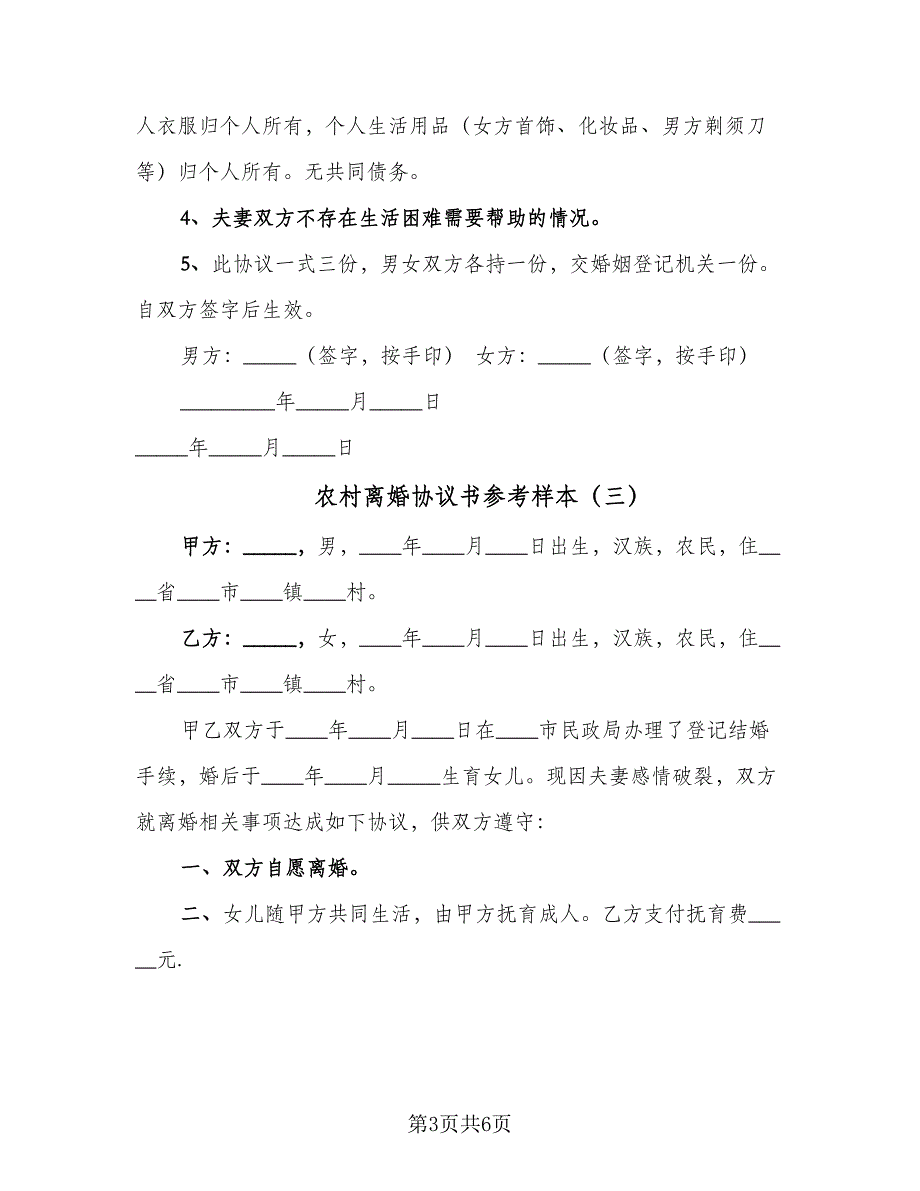 人衣服归个人所有，个人生活用品（女方首饰、化妆品、男方剃须刀
等）归个人所有。无共同债务。
4、夫妻双方不存在生活困难需要帮助的情况。
5、此协议一式三份，男女双方各持一份，交婚姻登记机关一份。
自双方签字后生效。
男方：_____（签字，按手印） 女方：_____（签字，按手印）
_________年_____月_____日
_____年_____月_____日
农村离婚协议书参考样本（三）
甲方：_____，男，____年____月____日出生，汉族，农民，住__
__省____市____镇____村。
乙方：_____，女，____年____月____日出生，汉族，农民，住__
__省____市____镇____村。
甲乙双方于____年____月____日在____市民政局办理了登记结婚
手续，婚后于____年____月_____生育女儿。现因夫妻感情破裂，双方
就离婚相关事项达成如下协议，供双方遵守：
一、双方自愿离婚。
二、女儿随甲方共同生活，由甲方抚育成人。乙方支付抚育费___
__元.
第3页共6页